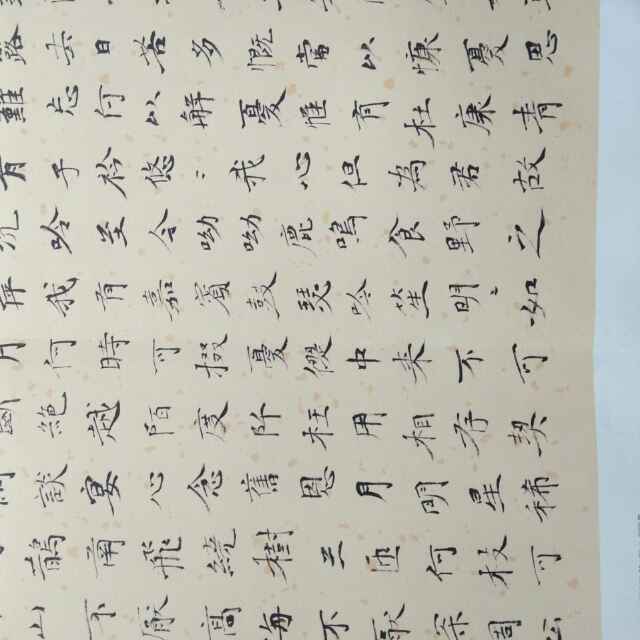 露去日苦多慨當以慷憂思
難忘何以解憂惟有杜康青
青子衿悠〻我心但為君故
沉吟至今呦呦鹿鳴食野之
苹我有嘉賓鼓瑟吹笙明〻如
月何時可掇憂從中來不可
斷絕越陌度阡枉用相存契
闊談宴心念舊恩月明星稀
鵲南飛繞樹三匝何枝可
山不厭高海不厭深周公